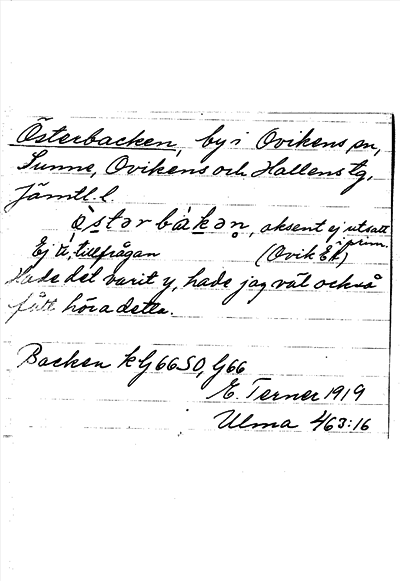 Österbacken, by i Ovikens sn,
Sunne, Ovikens och Hallens tg,
Jämtl. l.
östər bàkən, aksent ej utsatt
i prim.
Ej tillfrågan (Ovik Ek)
Hade det varit y, hade jag väl också
fått höra detta.
Backen kG66SO, G66
E. Terner 1919
Ulma 463:16